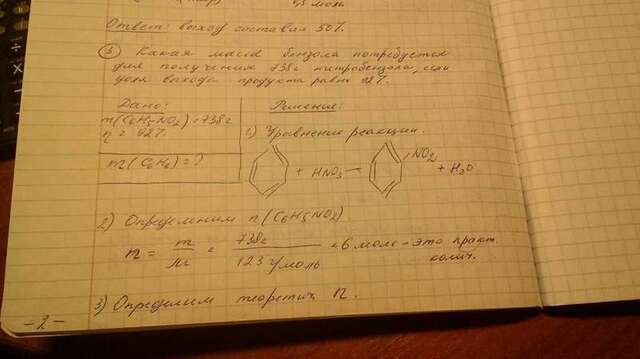 1,5 моль
Ответ: выход составил 50%.
③ Какая масса бензола потребуется
для получения 738г нитробензола, если
доля выхода продукта равна 92%.
Дано:
m(C6H5NO2)=738г
η = 92%
m(C6H6) = ?
Решение:
1) Уравнение реакции.
+ HNO3 → NO2 + H2O
2) Определим n(C6H5NO2)
n = m/M = 738г/123г/моль = 6 моль - это практ.
колич.
3) Определим теоретич. n.
-2-